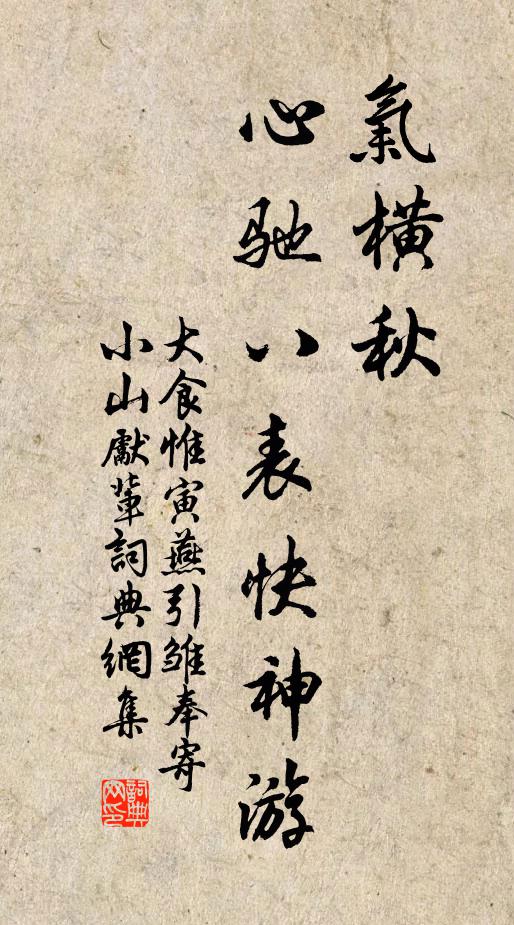 氣橫秋
心驰八表快神游
大食惟寅燕引雏奉寄
小山獻辈詞典網集
詞典
网印